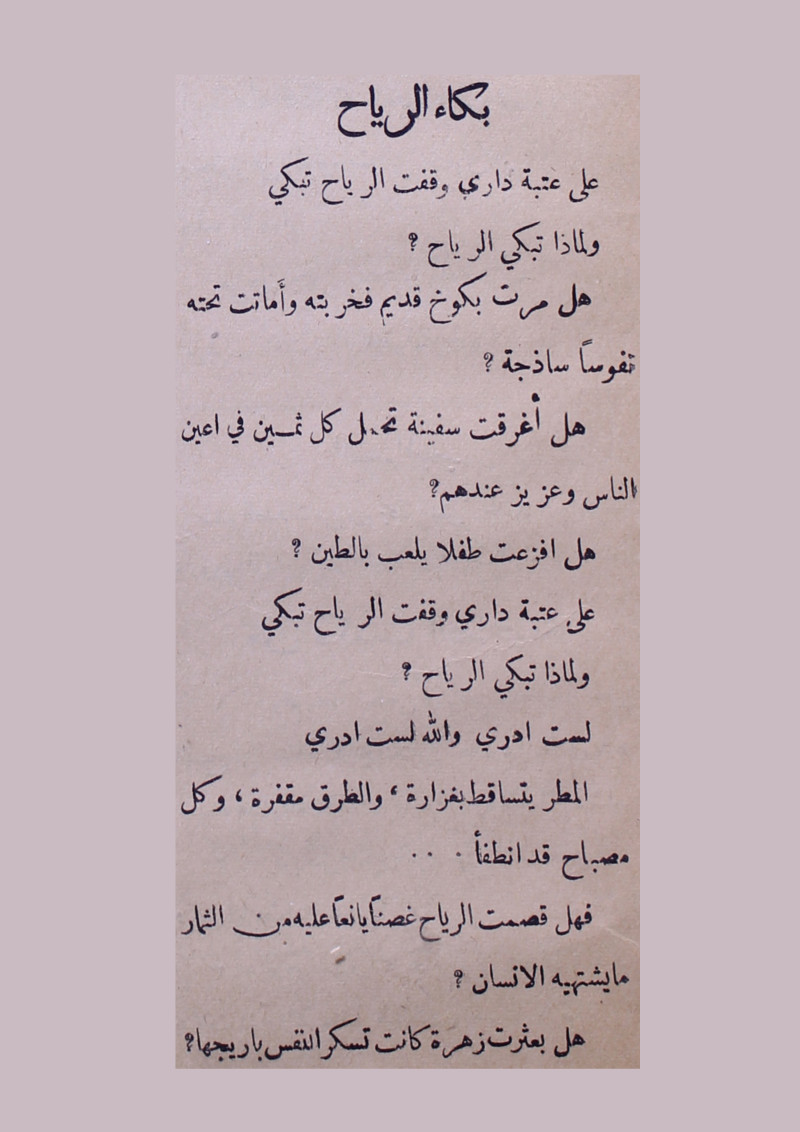 بكاء الرياح
على عتبة داري وقفت الرياح تبكي
ولماذا تبكي الرياح ؟
هل مرت بكوخ قديم فخربته وأماتت تحته
نفوساً ساذجة ؟
هل أغرقت سفينة تحمل كل ثمـين في اعين
الناس وعزيز عندهم؟
هل افزعت طفلا يلعب بالطين ؟
على عتبة داري وقفت الرياح تبكي
ولماذا تبكي الرياح ؟
لست ادري والله لست ادري
المطر يتساقط بغزارة ، والطرق مقفرة ، وكل
مصباح قد انطفأ . . .
فهل قصمت الرياح غصناً يانعاً عليه من الثمار
مايشتهيه الانسان ؟
هل بعثرت زهرة كانت تسكر النفس باريجها؟